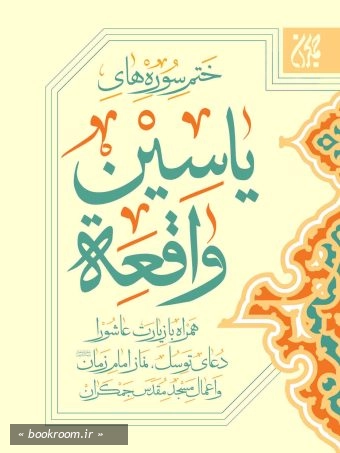 جمکران
ختم سوره‌های
یاسین
واقعة
همراه با زیارت عاشورا
دعای توسل، نماز امام زمان
و اعمال مسجد مقدس جمکران
« bookroom.ir »